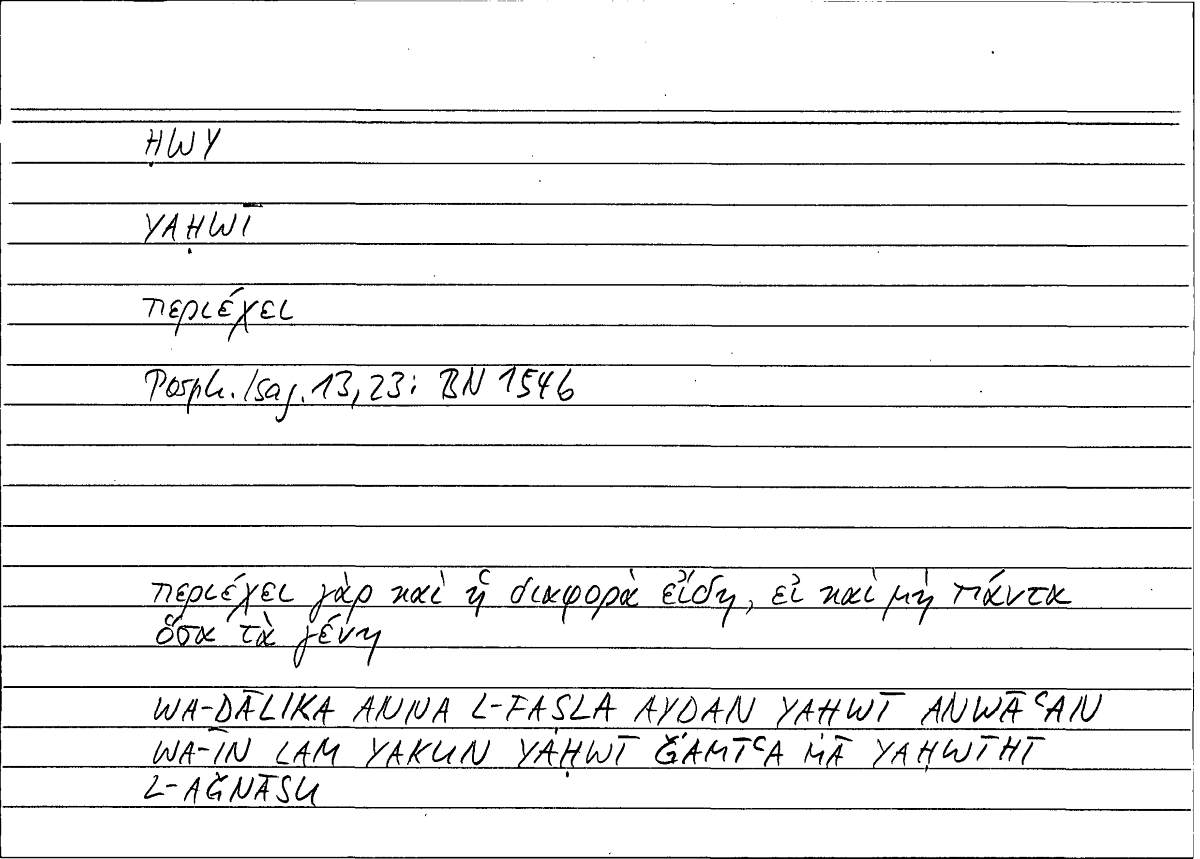 ḤWY
YAḤWĪ
περιέχει
Porph. Isag. 13,23: BN 154b
περιέχει γὰρ καὶ ἡ διαφορὰ εἴδη, εἰ καὶ μὴ πάντα
ὅσα τὰ γένη
WA-ḎĀLIKA ANNA L-FAṢLA AYḌAN YAḤWĪ ANWĀʿAN
WA-IN LAM YAKUN YAḤWĪ ǦAMĪʿA MĀ YAḤWĪHĪ
L-AǦNĀSU